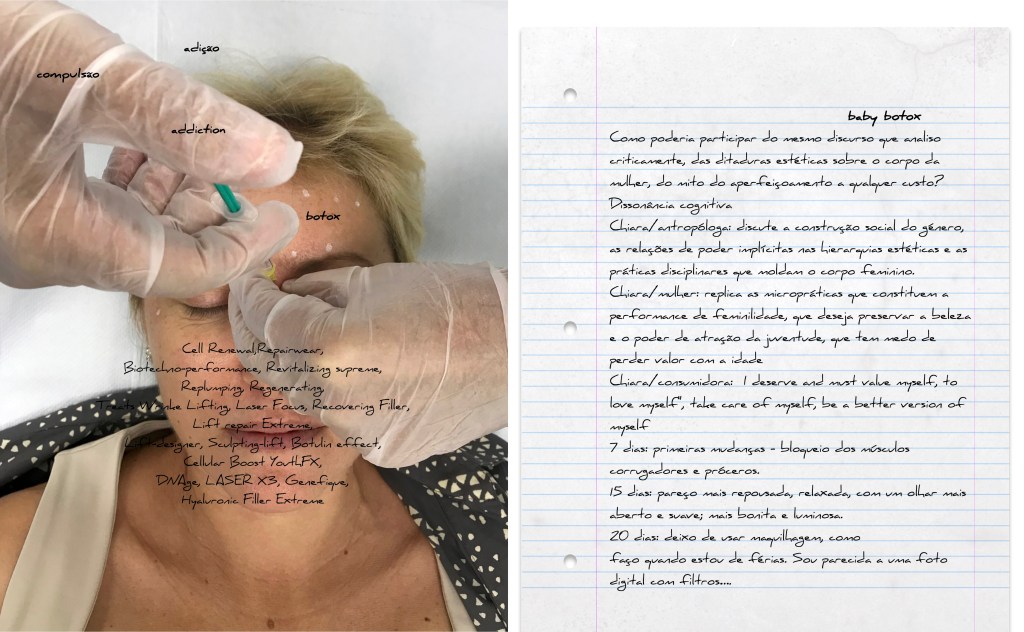 adição
compulsão
addiction
botox
Cell Renewal,Repairwear,
Biotechno-performance, Revitalizing supreme,
Replumping, Regenerating,
Treats Wrinke Lifting, Laser Focus, Recovering Filler,
Lift repair Extreme,
Lift-designer, Sculpting-lift, Botulin effect,
Cellular Boost YouthFX,
DNAge, LASER X3, Genefique,
Hyaluronic Filler Extreme
baby botox
Como poderia participar do mesmo discurso que analiso
criticamente, das ditaduras estéticas sobre o corpo da
mulher, do mito do aperfeiçoamento a qualquer custo?
Dissonância cognitiva
Chiara/antropóloga: discute a construção social do gênero,
as relações de poder implícitas nas hierarquias estéticas e as
práticas disciplinares que moldam o corpo feminino.
Chiara/mulher: replica as micropráticas que constituem a
performance de feminilidade, que deseja preservar a beleza
e o poder de atração da juventude, que tem medo de
perder valor com a idade
Chiara/consumidora: I deserve and must value myself, to
love myself", take care of myself, be a better version of
myself
7 dias: primeiras mudanças - bloqueio dos músculos
corrugadores e próceros.
15 dias: pareço mais repousada, relaxada, com um olhar mais
aberto e suave; mais bonita e luminosa.
20 dias: deixo de usar maquilhagem, como
faço quando estou de férias. Sou parecida a uma foto
digital com filtros....